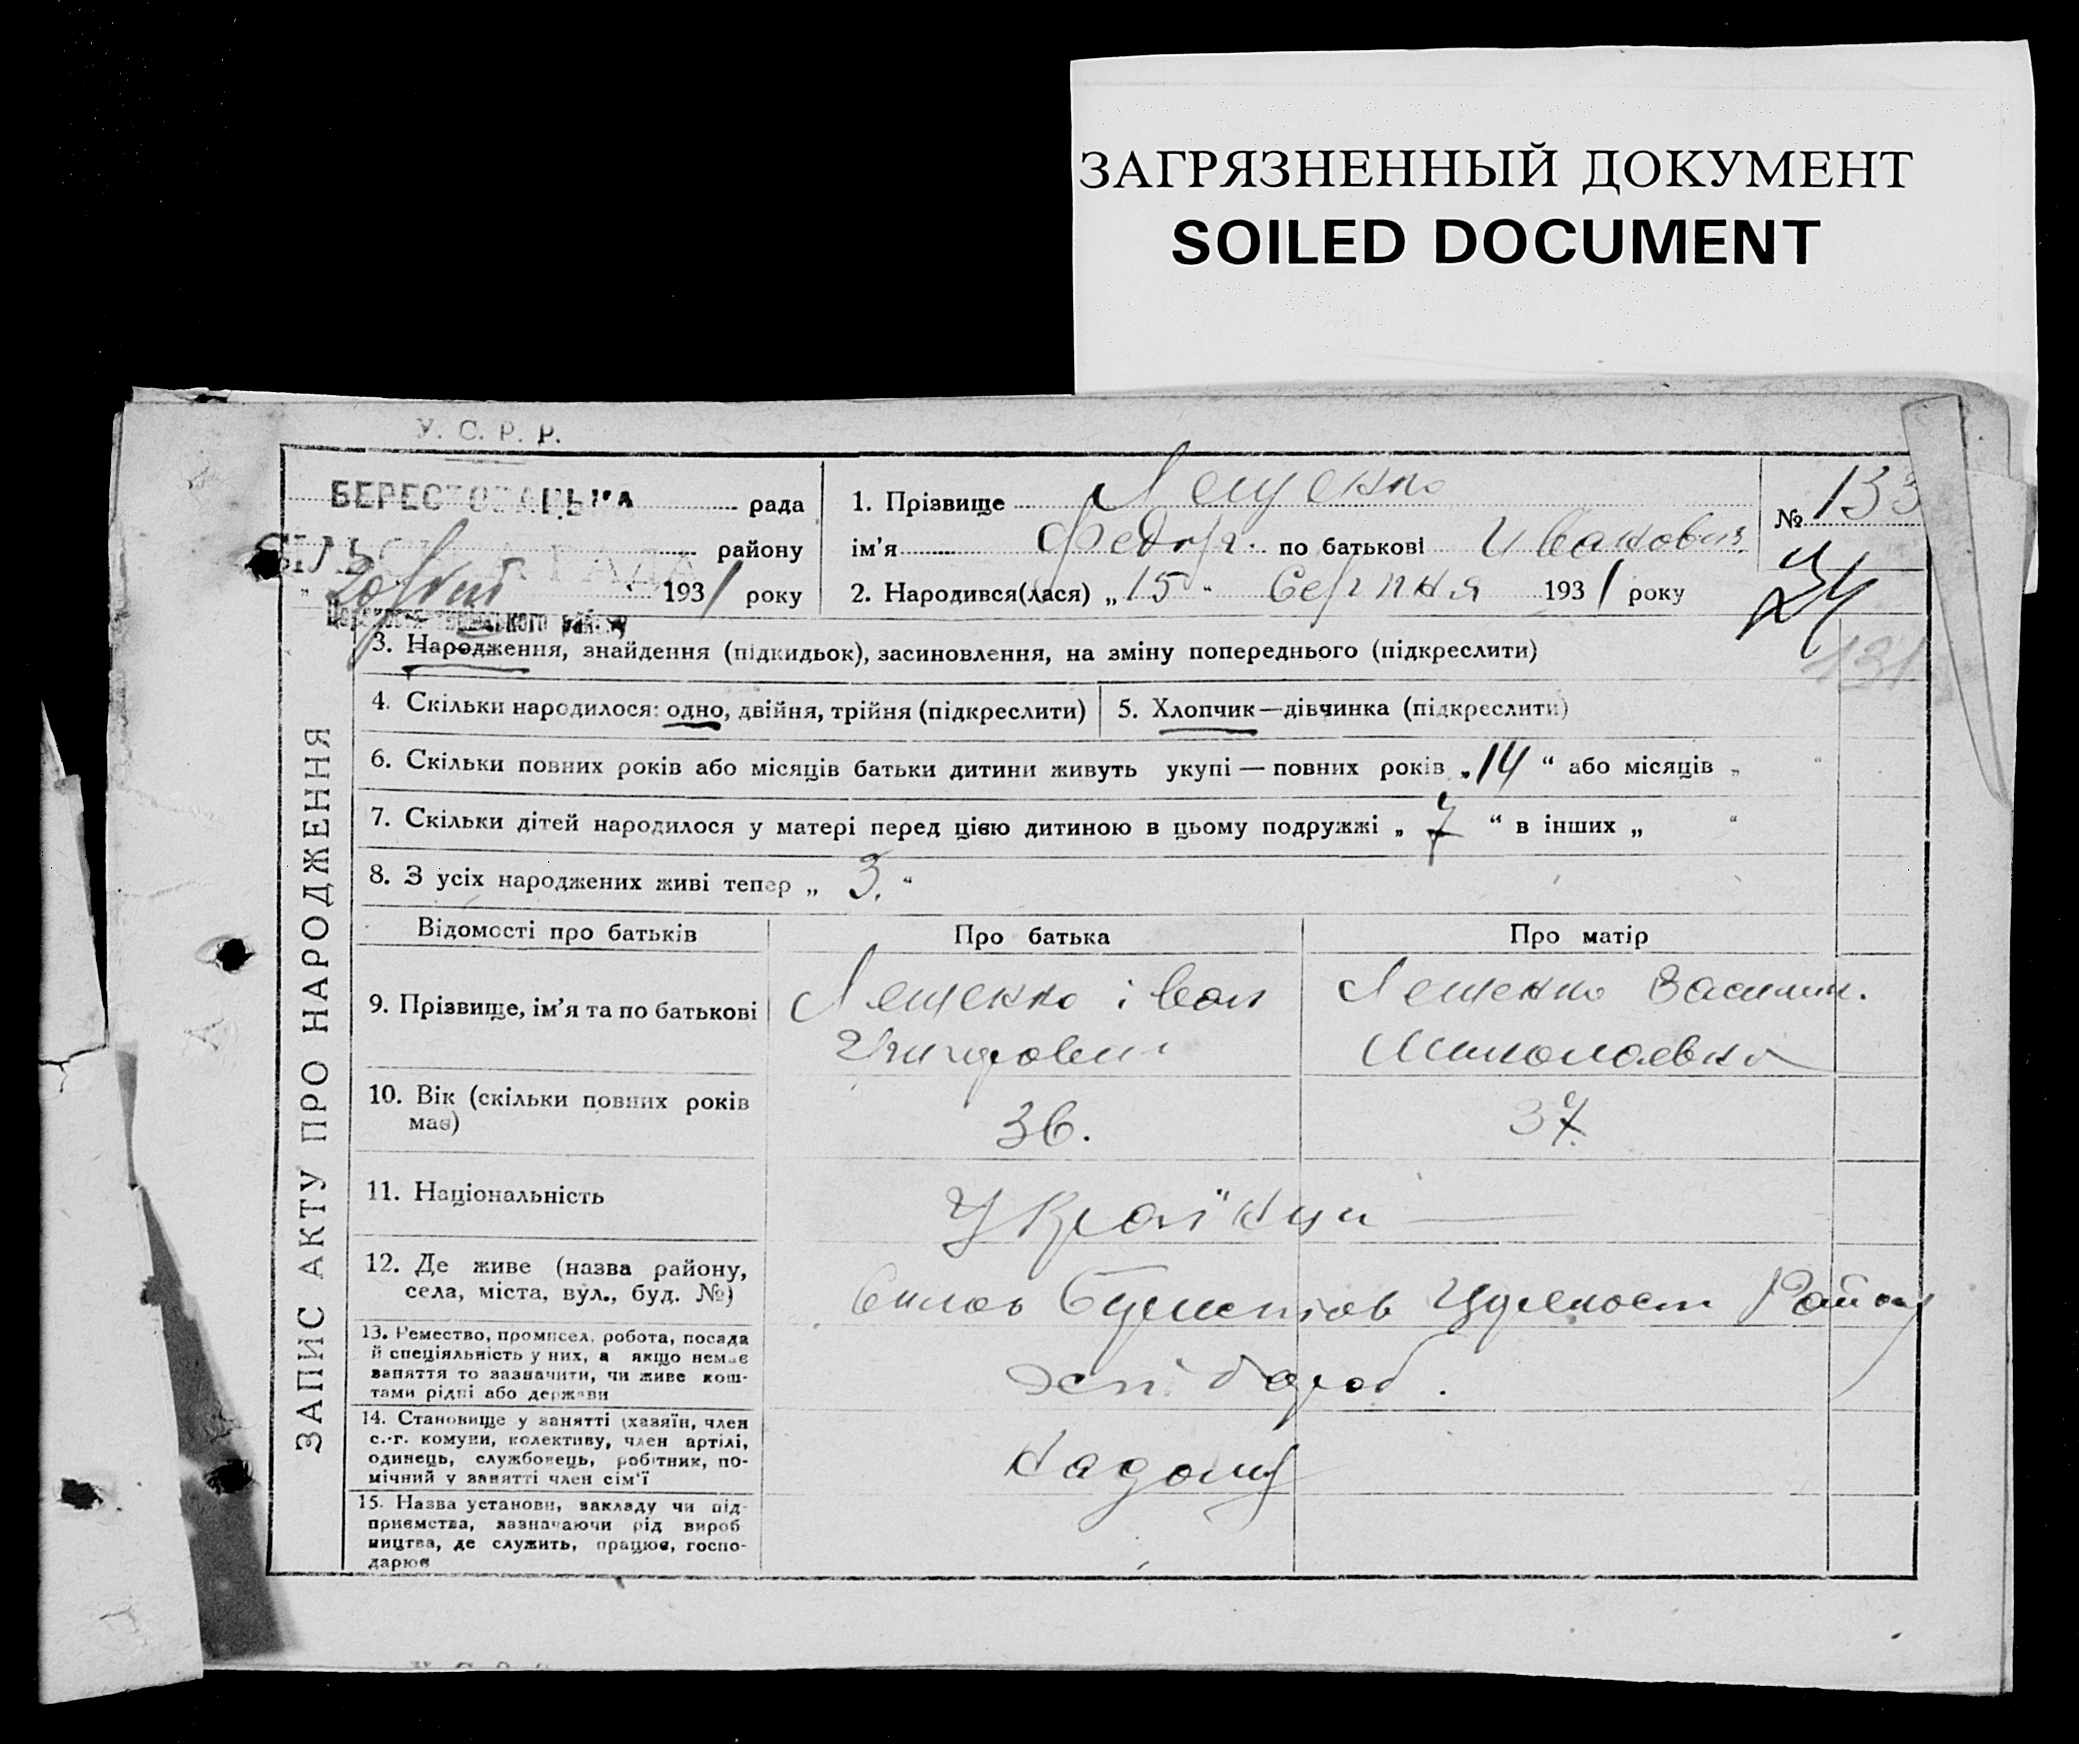 ЗАГРЯЗНЕННЫЙ ДОКУМЕНТ
SOILED DOCUMENT
У. С. Р. Р.
рада
СІЛЬСЬКА РАДА району
" 1931 року
1. Прізвище Лещенко
ім'я Федор по батькові Иванович
2. Народився(лася) „15" Серпня 1931 року
№ 133
24
131
ЗАПИС АКТУ ПРО НАРОДЖЕННЯ
3. Народження, знайдення (підкидьок), засиновлення, на зміну попереднього (підкреслити)
4. Скільки народилося: одно, двійня, трійня (підкреслити) 5. Хлопчик—дівчинка (підкреслити)
6. Скільки повних років або місяців батьки дитини живуть укупі — повних років „14“ або місяців „ “
7. Скільки дітей народилося у матері перед цією дитиною в цьому подружжі „ 7 “ в інших „ “
8. З усіх народжених живі тепер „ 3. “
Відомості про батьків Про батька Про матір
9. Прізвище, ім'я та по батькові Лещенко іван Лещенко Василис.
Миколаевна
10. Вік (скільки повних років має) 36. 37.
11. Національність Україnци
12. Де живе (назва району,
села, міста, вул., буд. №)
13. Ремество, промисел, робота, посада
й спеціяльність у них, а якщо немає
заняття то зазначити, чи живе кош-
тами рідні або держави
14. Становище у занятті (хазяїн, член
с.-г. комуни, колективу, член артілі,
одинець, службовець, робітник, по-
мічний у занятті член сім'ї
15. Назва установи, закладу чи під-
приємства, зазначаючи рід вироб
ництва, де служить, працює, госпо-
дарює